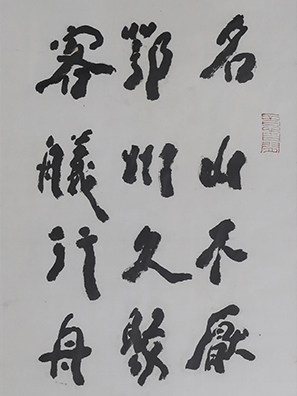 名山不厭
鄂州久聚
客艤行舟